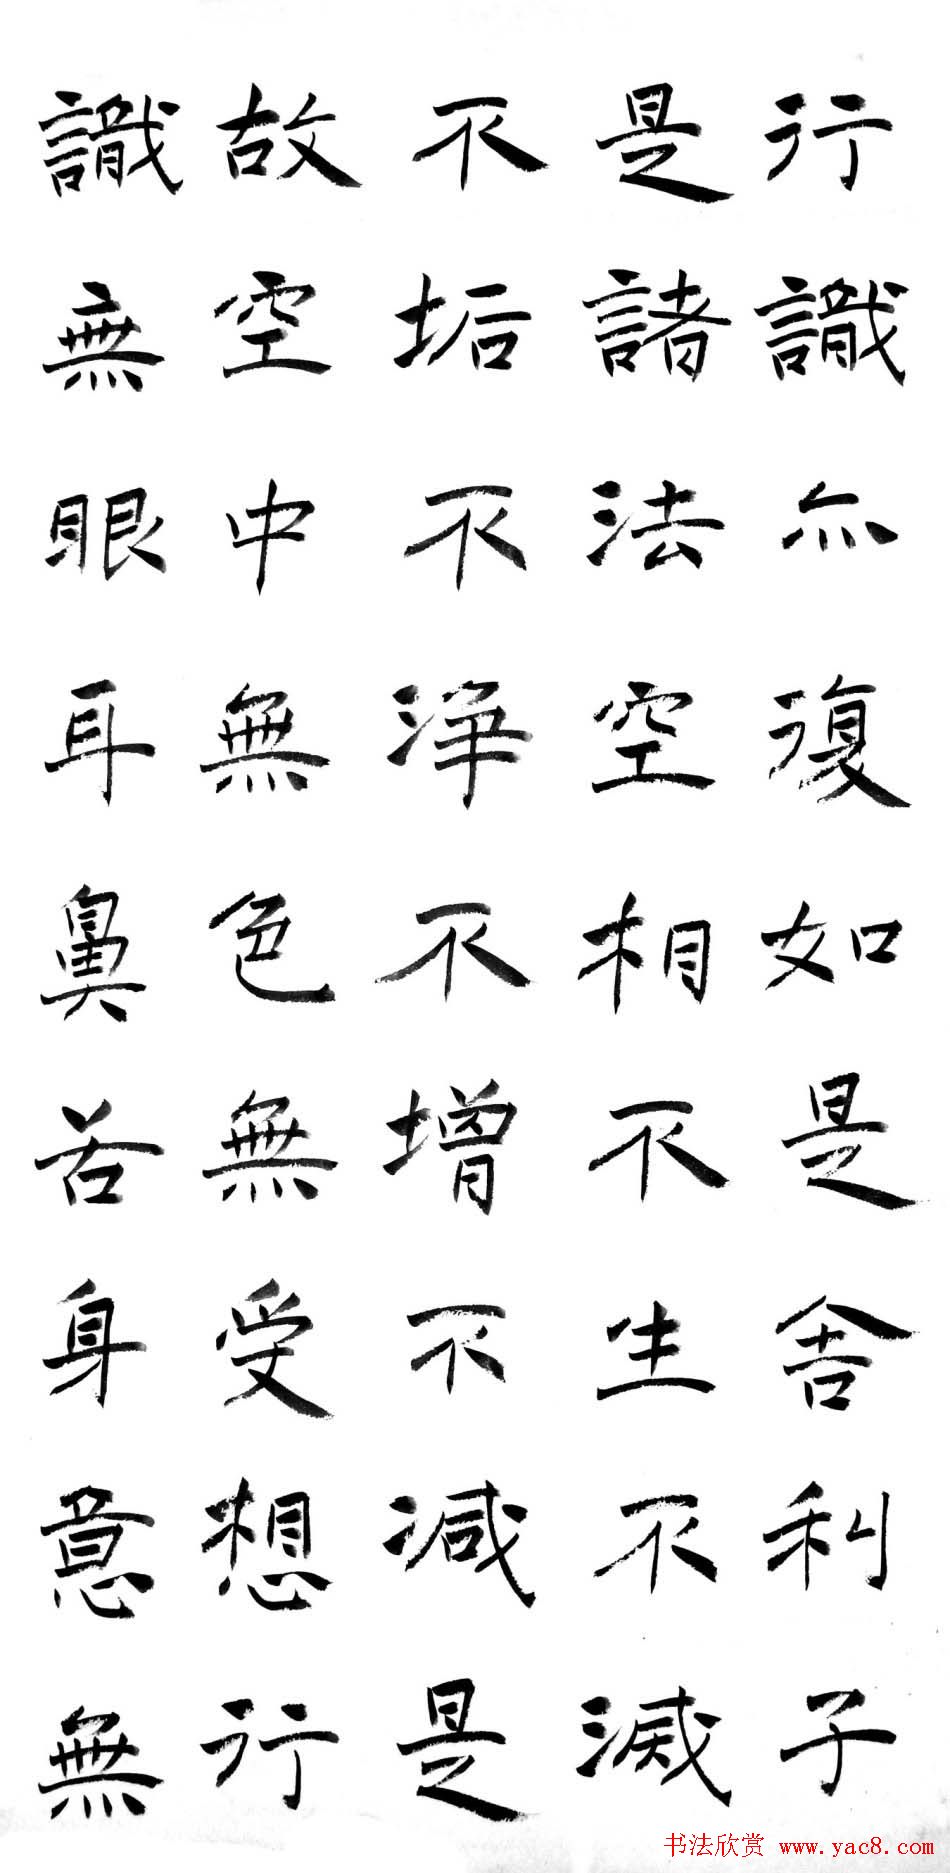 行識亦復如是舍利子
是諸法空相不生不滅
不垢不淨不增不減是
故空中無色無受想行
識無眼耳鼻舌身意無
书法欣赏 www.yac8.com